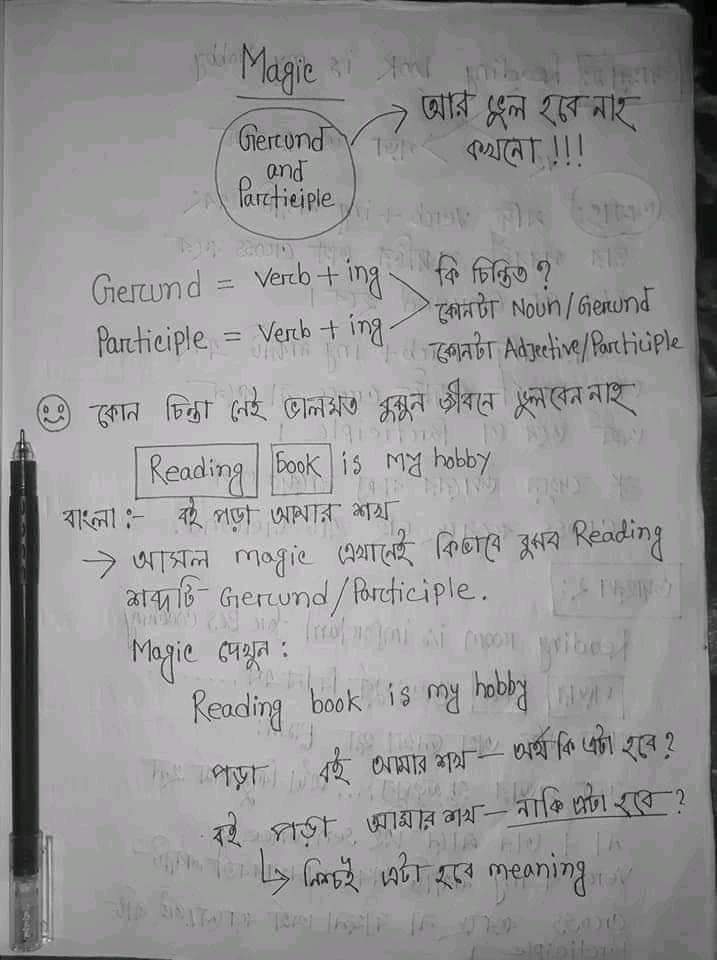 Magic
Gerund
and
Participle
আর ভুল হবে নাহ
কখনো !!!
Gerund = verb + ing
Participle = verb + ing
কি চিন্তিত ?
কোনটা Noun/Gerund
কোনটা Adjective/Participle
কোন চিন্তা নেই ভালমত বুঝুন জীবনে ভুলবেন নাহ
Reading book is my hobby
বাংলা :- বই পড়া আমার শখ
→ আসল magic এখানেই কিভাবে বুঝব Reading
শব্দটি Gerund/Participle.
Magic দেখুন :
Reading book is my hobby
পড়া বই আমার শখ — অর্থ কি এটা হবে ?
বই পড়া আমার শখ — নাকি এটা হবে ?
→ নিশ্চই এটা হবে meaning